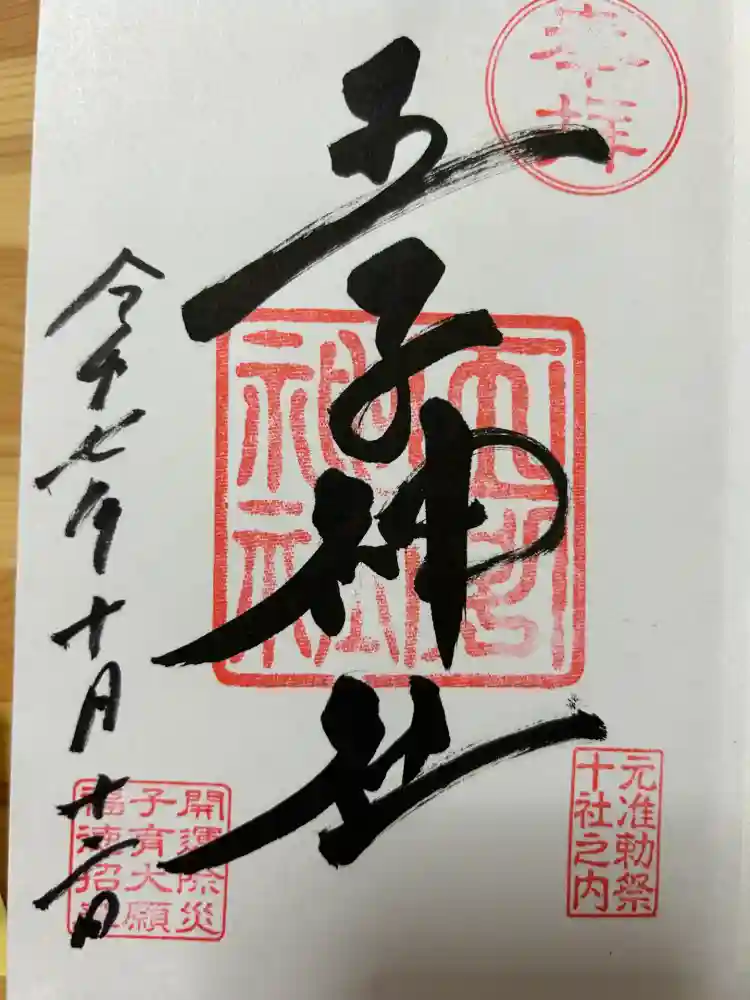 奉拝
王子神社
元准勅祭
十社之内
令和七年十月十二日
開運除災
子育大願
福徳招